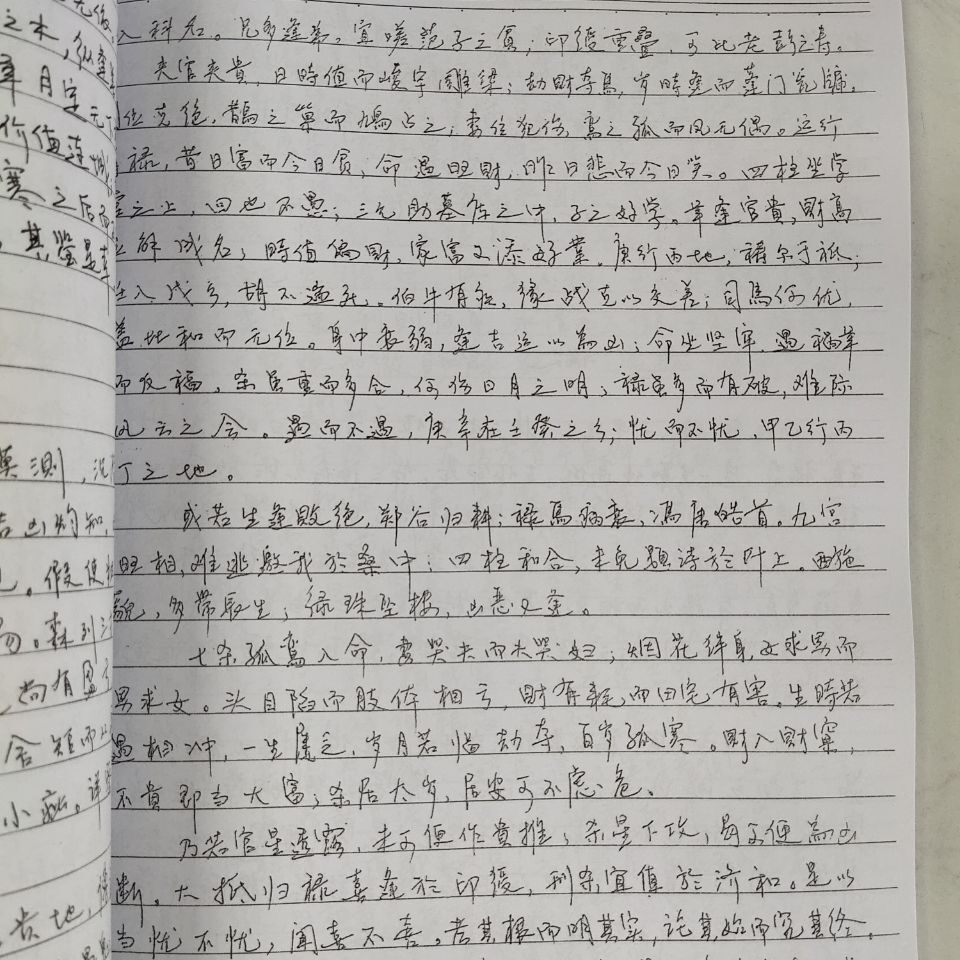 入科名。兄多逢弟，宜嗟范子之貧；印綬重疊，可比老彭之寿。
夹官夹貴，日時值而峻宇雕梁；劫財夺馬，岁時逢而蓬门瓮牖。
位克绝，鵲之巢而鳩占之；妻位犯伤，鸾之孤而凤无偶。运行
禄，昔日富而今日貧，命遇旺财，昨日悲而今日笑。四柱坐学
之上，回也不愚；三元助墓库之中，子之好学。羊逢官貴，财高
解成名；時值偏财，家富又添好業。庚行丙地，祷尔于祇；
入戊乡，胡不遄死。伯牛有疾，缘战克以交差；司馬何优，
盖比和而元位。身中衰弱，逢吉运以為凶；命坐坚牢，遇禍羊
而反福，杀虽重而多合，何伤日月之明；禄虽多而有破，难际
风云之会。遇而不遇，庚辛在壬癸之乡；忧而不忧，甲乙行丙
丁之地。
或若生逢败绝，郑谷归耕；禄馬病衰，冯唐皓首。九宫
旺相，难逃邀我於桑中；四柱和合，未免题诗於叶上。西施
貌，多带长生；绿珠坠楼，凶恶又逢。
七杀孤鸾入命，妻哭夫而夫哭妇；烟花绊身，女求男而
男求女。头目陷而肢体相亏，财有耗而田宅有害。生時若
遇相冲，一生屡乏，岁月若临劫夺，百岁孤寒。财入财窠，
不貴即当大富；杀居太岁，居安可不虑危。
乃若官星透露，未可便作貴推；杀星下攻，每可便為凶
断。大抵归禄喜逢於印綬，刑杀宜值於济和。是以
当忧不忧，闻喜不喜。者其根而明其实，讫其始而究其终。
之木
年月生元
价值连
寒之后而
其鉴
莫测
吉凶灼知
假使
森列
尚有
舍短而
小疵
貴地